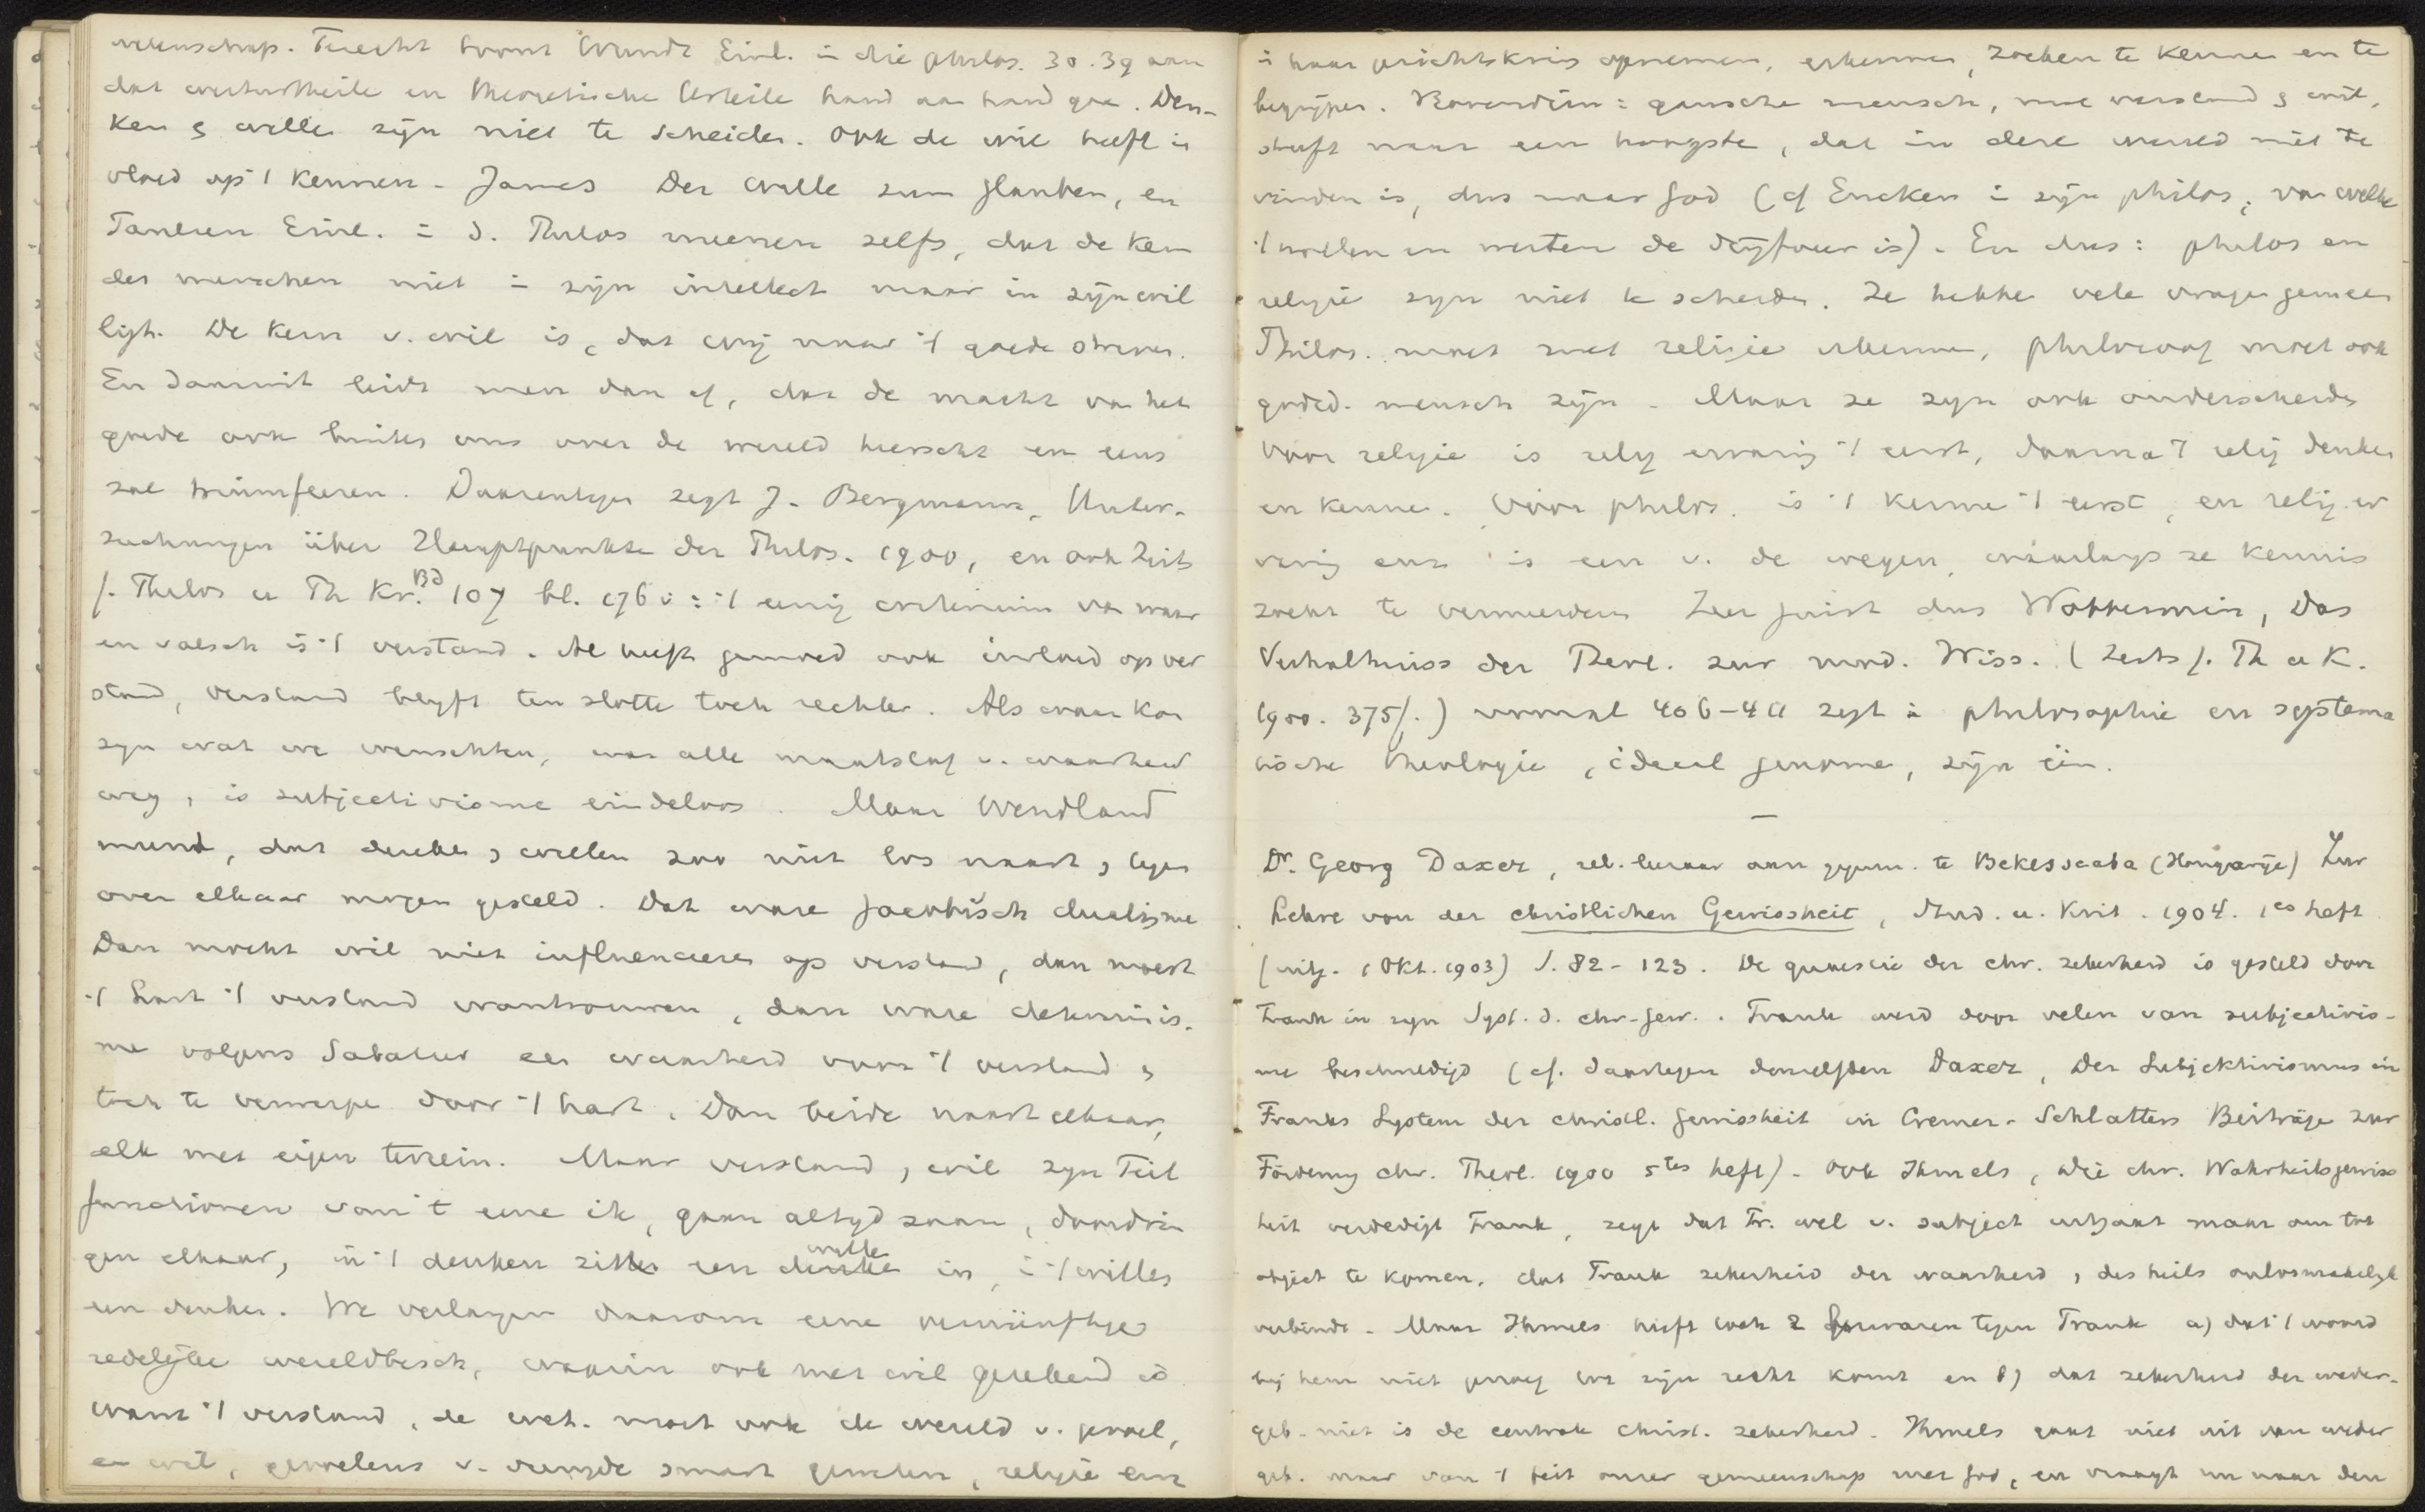 wetenschap. Terecht toont Wundt Einl. in die philos. 30. 39 aan
dat werturtheile en theoretische Urteile hand aan hand gaan. Den-
ken & willen zijn niet te scheiden. Ook de wil heeft in
vloed op 't kennen. James Der Wille zum Glauben, en
Paulsen Einl. in d. Philos meenen zelfs, dat de kern
des menschen niet in zijn intellect maar in zijn wil
ligt. De kern v. wil is, dat wij naar 't goede streven.
En daaruit leidt men dan af, dat de macht van het
goede ook buiten ons over de wereld heerscht en eens
zal triumfeeren. Daarentegen zegt J. Bergmann, Unter-
suchungen über Hauptpunkte der Philos. 1900, en ook Zeits
f. Philos u Th Kr. Bd 107 bl. 176 v: 't eenig criterium van waar
en valsch is 't verstand. Al heeft gemoed ook invloed op ver
stand, verstand blijft ten slotte toch rechter. Als waar kon
zijn wat we wenschten, was alle maatstaf v. waarheid
weg, is subjectivisme eindeloos. Maar Wendland
meent, dat denken & willen zoo niet los naast & tegen
over elkaar mogen gesteld. Dat ware Jacobisch dualisme
Dan mocht wil niet influenceeren op verstand, dan moest
't hart 't verstand wantrouwen, dan ware determinis-
me volgens Sabatier een waarheid voor 't verstand &
toch te verwerpen door 't hart. Dan beide naast elkaar,
elk met eigen terrein. Maar verstand & wil zijn Teil
functionen van 't eene ik, gaan altijd saam, doordrin
gen elkaar, in 't denken zit een wille in, in 't willen
een denken. We verlangen daarom eene vernünftige
redelijke wereldbesch., waarin ook met wil gerekend is
want 't verstand, de wet. moet ook de wereld v. gevoel,
en wil, gevoelens v. vreugde smart, religie enz
in haar gezichtskring opnemen, erkennen, zoeken te kennen en te
begrijpen. Bovendien: gansche mensch, met verstand & wil,
streeft naar een hoogste, dat in deze wereld niet te
vinden is, dus naar God (cf Eucken in zijn philos, van welke
't wollen en werten de drijfveer is). En dus: philos en
religie zijn niet te scheiden. Ze hebben vele vragen gemeen
Philos. moet met religie rekenen, philosoof moet ook
godsd. mensch zijn. Maar ze zijn ook onderscheiden
Voor religie is relig ervaring 't eerst, daarna 't relig denken
en kennen. Voor philos. is 't kennen 't eerst, en relig. er
varing enz is een v. de wegen, waarlangs ze kennis
zoekt te vermeerderen. Zeer juist dus Wobbermin, Das
Verhältniss der Theol. zur mod. Wiss. (Zeits f. Th u K.
1900. 375 f.) vooral 406-411 zegt in philosophie en systema
tische theologie, ideaal genomen, zijn één.
—
Dr. Georg Daxer, rel. leeraar aan gymn. te Bekescsaba (Hongarije) Zur
Lehre von der christlichen Gewissheit, Stud. u. Krit. 1904. 1es heft
(uitg. 1 Okt. 1903) S. 82 - 123. De quaestie der chr. zekerheid is gesteld door
Frank in zijn Syst. d. chr. Gew.. Frank werd door velen van subjectivis-
me beschuldigd (cf. daartegen denzelfden Daxer, Der Subjektivismus in
Franks System der christl. Gewissheit in Cremer-Schlatters Beiträge zur
Förderung chr. Theol. 1900 5tes heft). Ook Ihmels, Die chr. Wahrheitsgewiss
heit verdedigt Frank, zegt dat Fr. wel v. subject uitgaat maar om tot
object te komen, dat Frank zekerheid der waarheid & des heils onlosmakelijk
verbindt. Maar Ihmels heeft ook 2 bezwaren tegen Frank a) dat 't woord
bij hem niet genoeg tot zijn recht komt en b) dat zekerheid der weder-
geb. niet is de centrale christ. zekerheid. Ihmels gaat niet uit van weder
geb. maar van 't feit onzer gemeenschap met God, en vraagt nu naar den